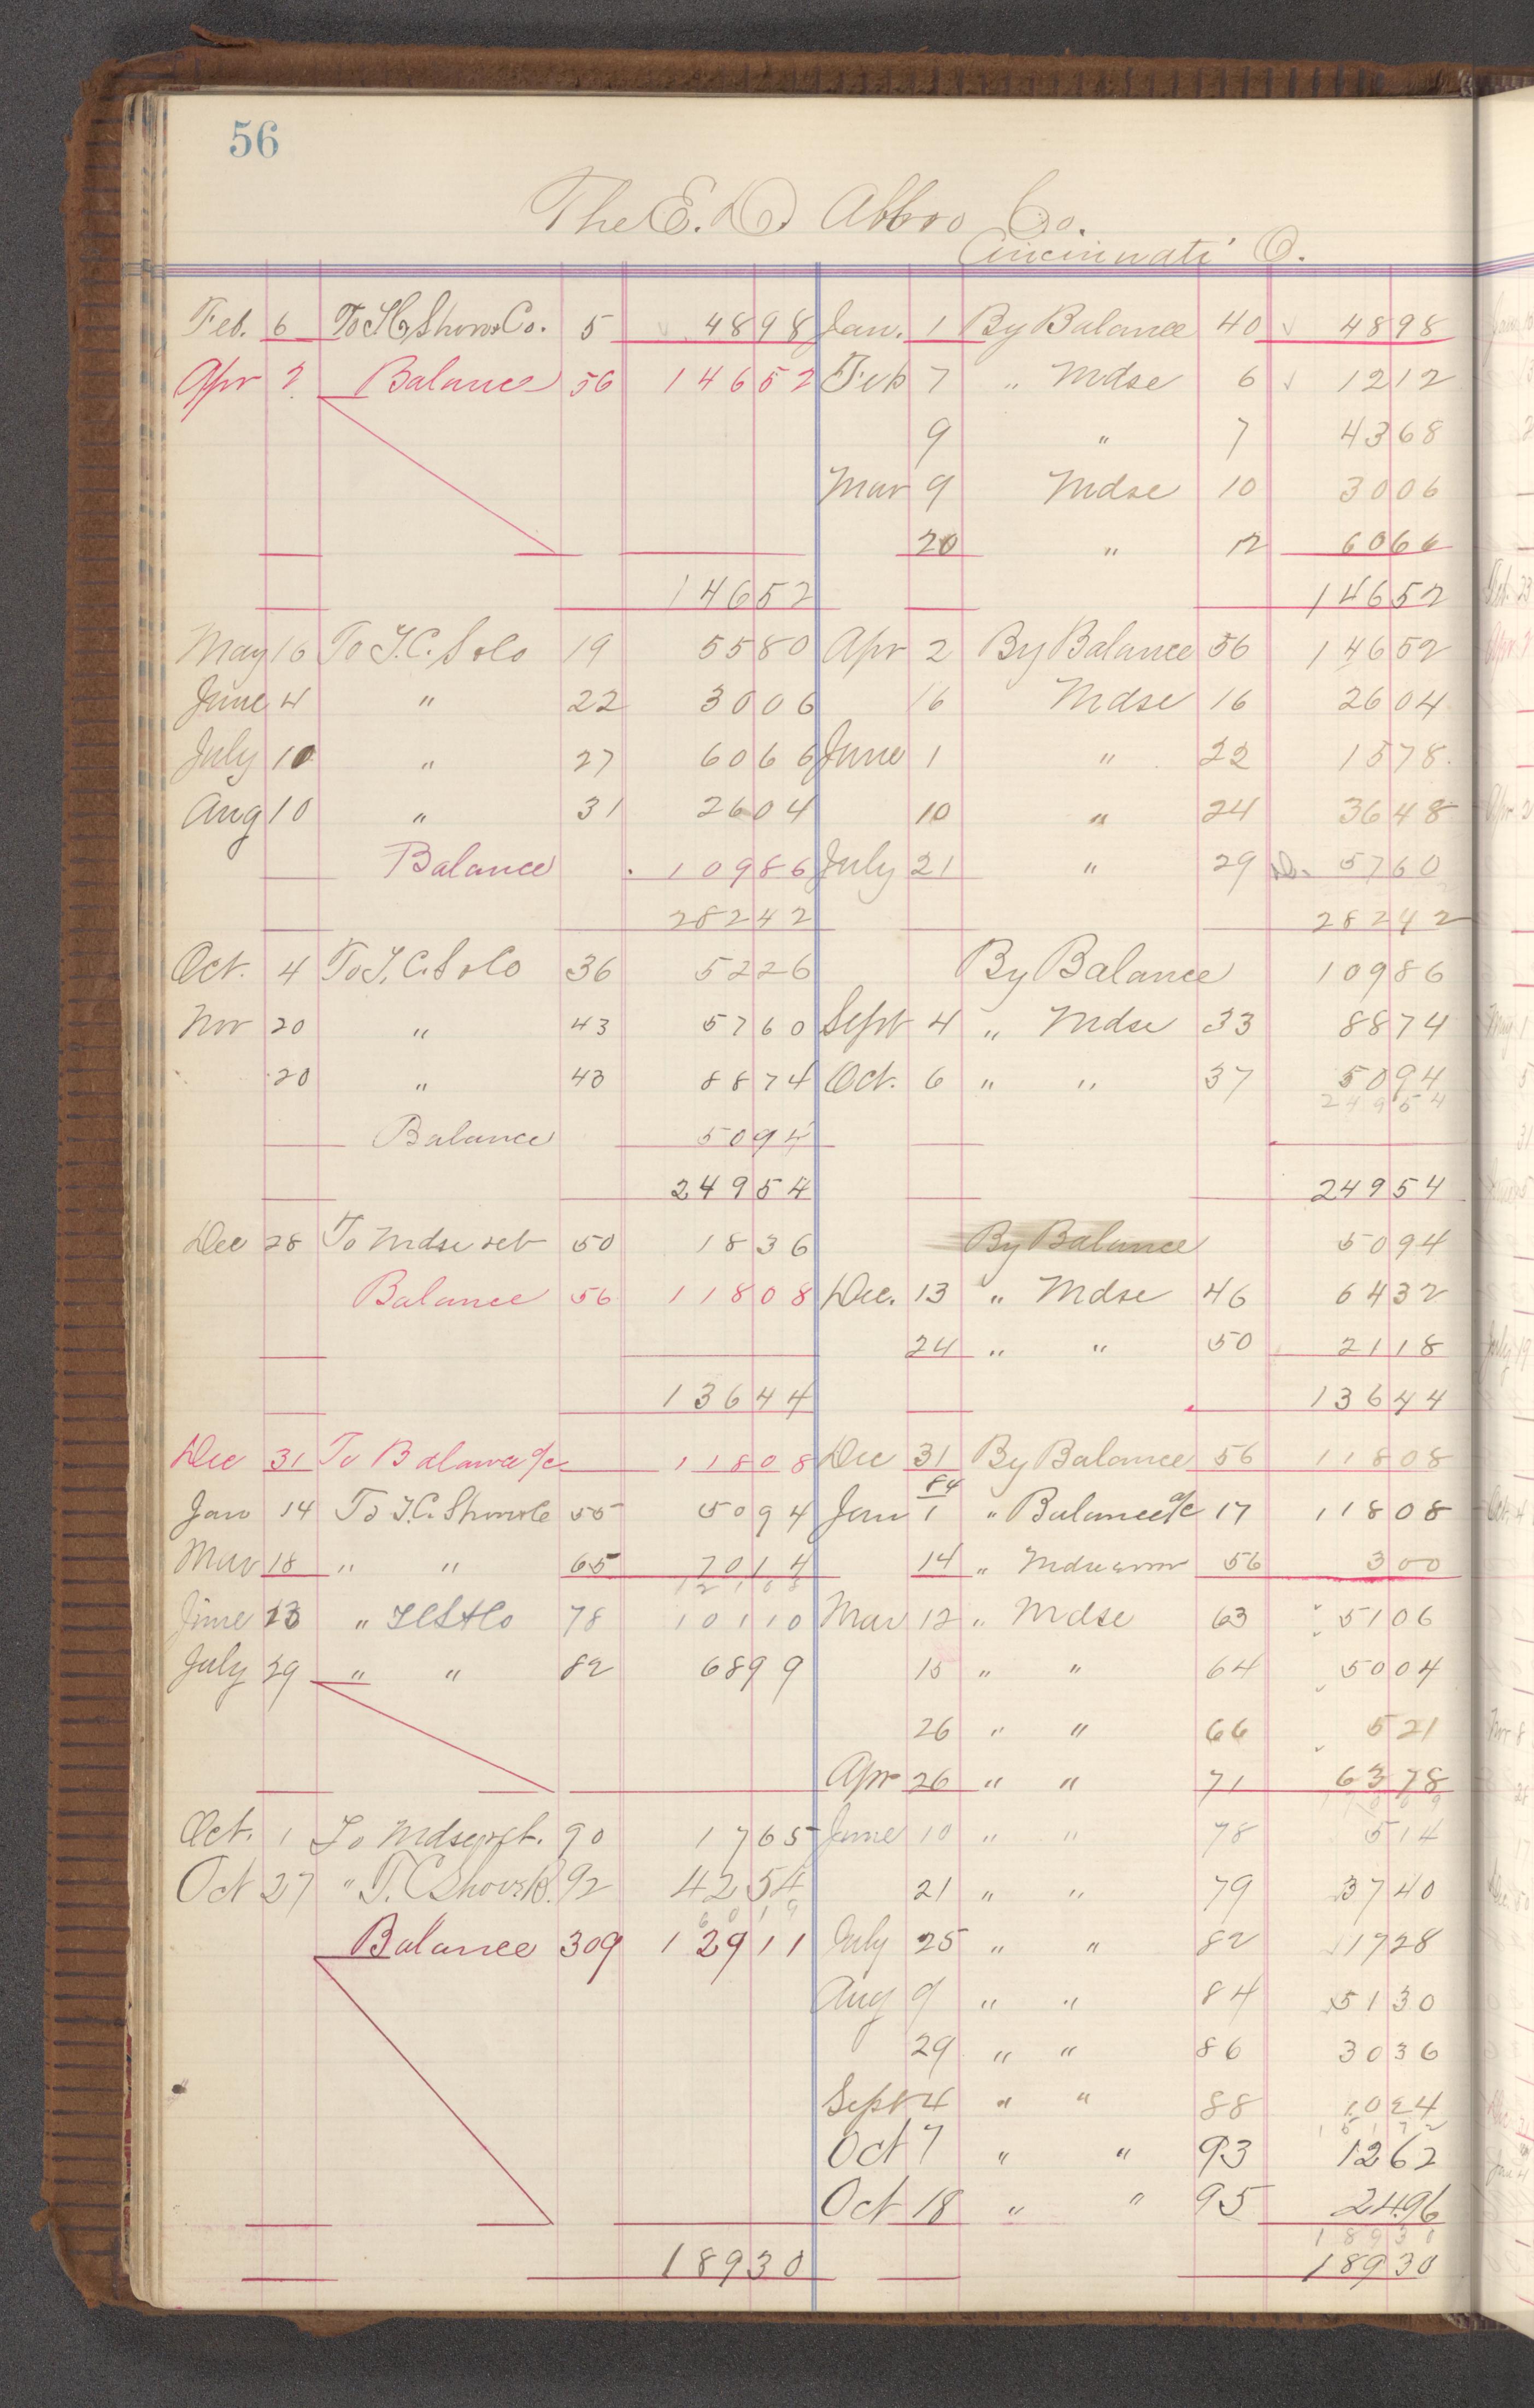 56
The E. D. Albro Co.
Cincinnati O.
Feb. 6 To Co. 5 4898 Jan. 1 By Balance 40 4898
Apr 2 Balance 56 14652 Feb 7 " Mdse 6 1212
9 " 7 4368
Mar 9 Mdse 10 3006
20 " 12 6066
14652 14652
May 16 To T.C. S & Co 19 5580 Apr 2 By Balance 56 14652
June 4 " 22 3006 16 Mdse 16 2604
July 10 " 27 6066 June 1 " 22 1578
Aug 10 " 31 2604 10 " 24 3648
Balance 10986 July 21 " 29 5760
28242 28242
Oct. 4 To T.C. S & Co 36 5226 By Balance 10986
Nov 20 " 43 5760 Sept 4 " Mdse 33 8874
20 " 43 8874 Oct. 6 " " 37 5094
24954
Balance 5094
24954 24954
Dec 28 To Mdse ret 50 1836 By Balance 5094
Balance 56 11808 Dec. 13 " Mdse 46 6432
24 " " 50 2118
13644 13644
Dec 31 To Balance a/c 11808 Dec 31 By Balance 56 11808
84
Jan 14 To T.C. 55 5094 Jan 1 " Balance a/c 17 11808
Mar 18 " " 65 7014 14 " Mdse error 56 300
12108
June 23 " 78 10110 Mar 12 " Mdse 63 5106
July 29 " " 82 6899 15 " " 64 5004
26 " " 66 521
Apr 26 " " 71 6378
Oct. 1 To Mdse ret. 90 1765 June 10 " " 78 514
Oct 27 " T.C. 92 4254 21 " " 79 3740
6019
Balance 309 12911 July 25 " " 82 1728
Aug 9 " " 84 5130
29 " " 86 3036
Sept 4 " " 88 1024
15172
Oct 7 " " 93 1262
Oct 18 " " 95 2496
18930
18930 18930